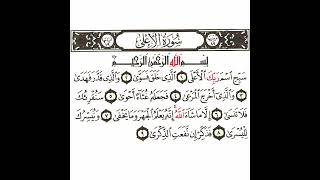 سُورَةُ الْأَعْلَى
بِسْمِ اللَّهِ الرَّحْمَٰنِ الرَّحِيمِ
سَبِّحِ اسْمَ رَبِّكَ الْأَعْلَى ١ الَّذِي خَلَقَ فَسَوَّىٰ ٢ وَالَّذِي قَدَّرَ فَهَدَىٰ
٣ وَالَّذِي أَخْرَجَ الْمَرْعَىٰ ٤ فَجَعَلَهُ غُثَاءً أَحْوَىٰ ٥ سَنُقْرِئُكَ
فَلَا تَنسَىٰ ٦ إِلَّا مَا شَاءَ اللَّهُ إِنَّهُ يَعْلَمُ الْجَهْرَ وَمَا يَخْفَىٰ ٧ وَنُيَسِّرُكَ
لِلْيُسْرَىٰ ٨ فَذَكِّرْ إِن نَّفَعَتِ الذِّكْرَىٰ ٩